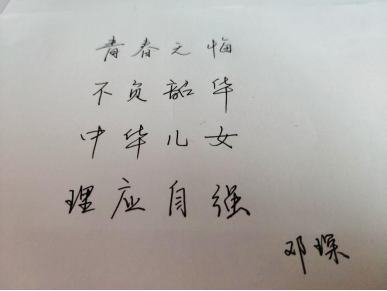 青春无悔
不负韶华
中华儿女
理应自强
邓琛